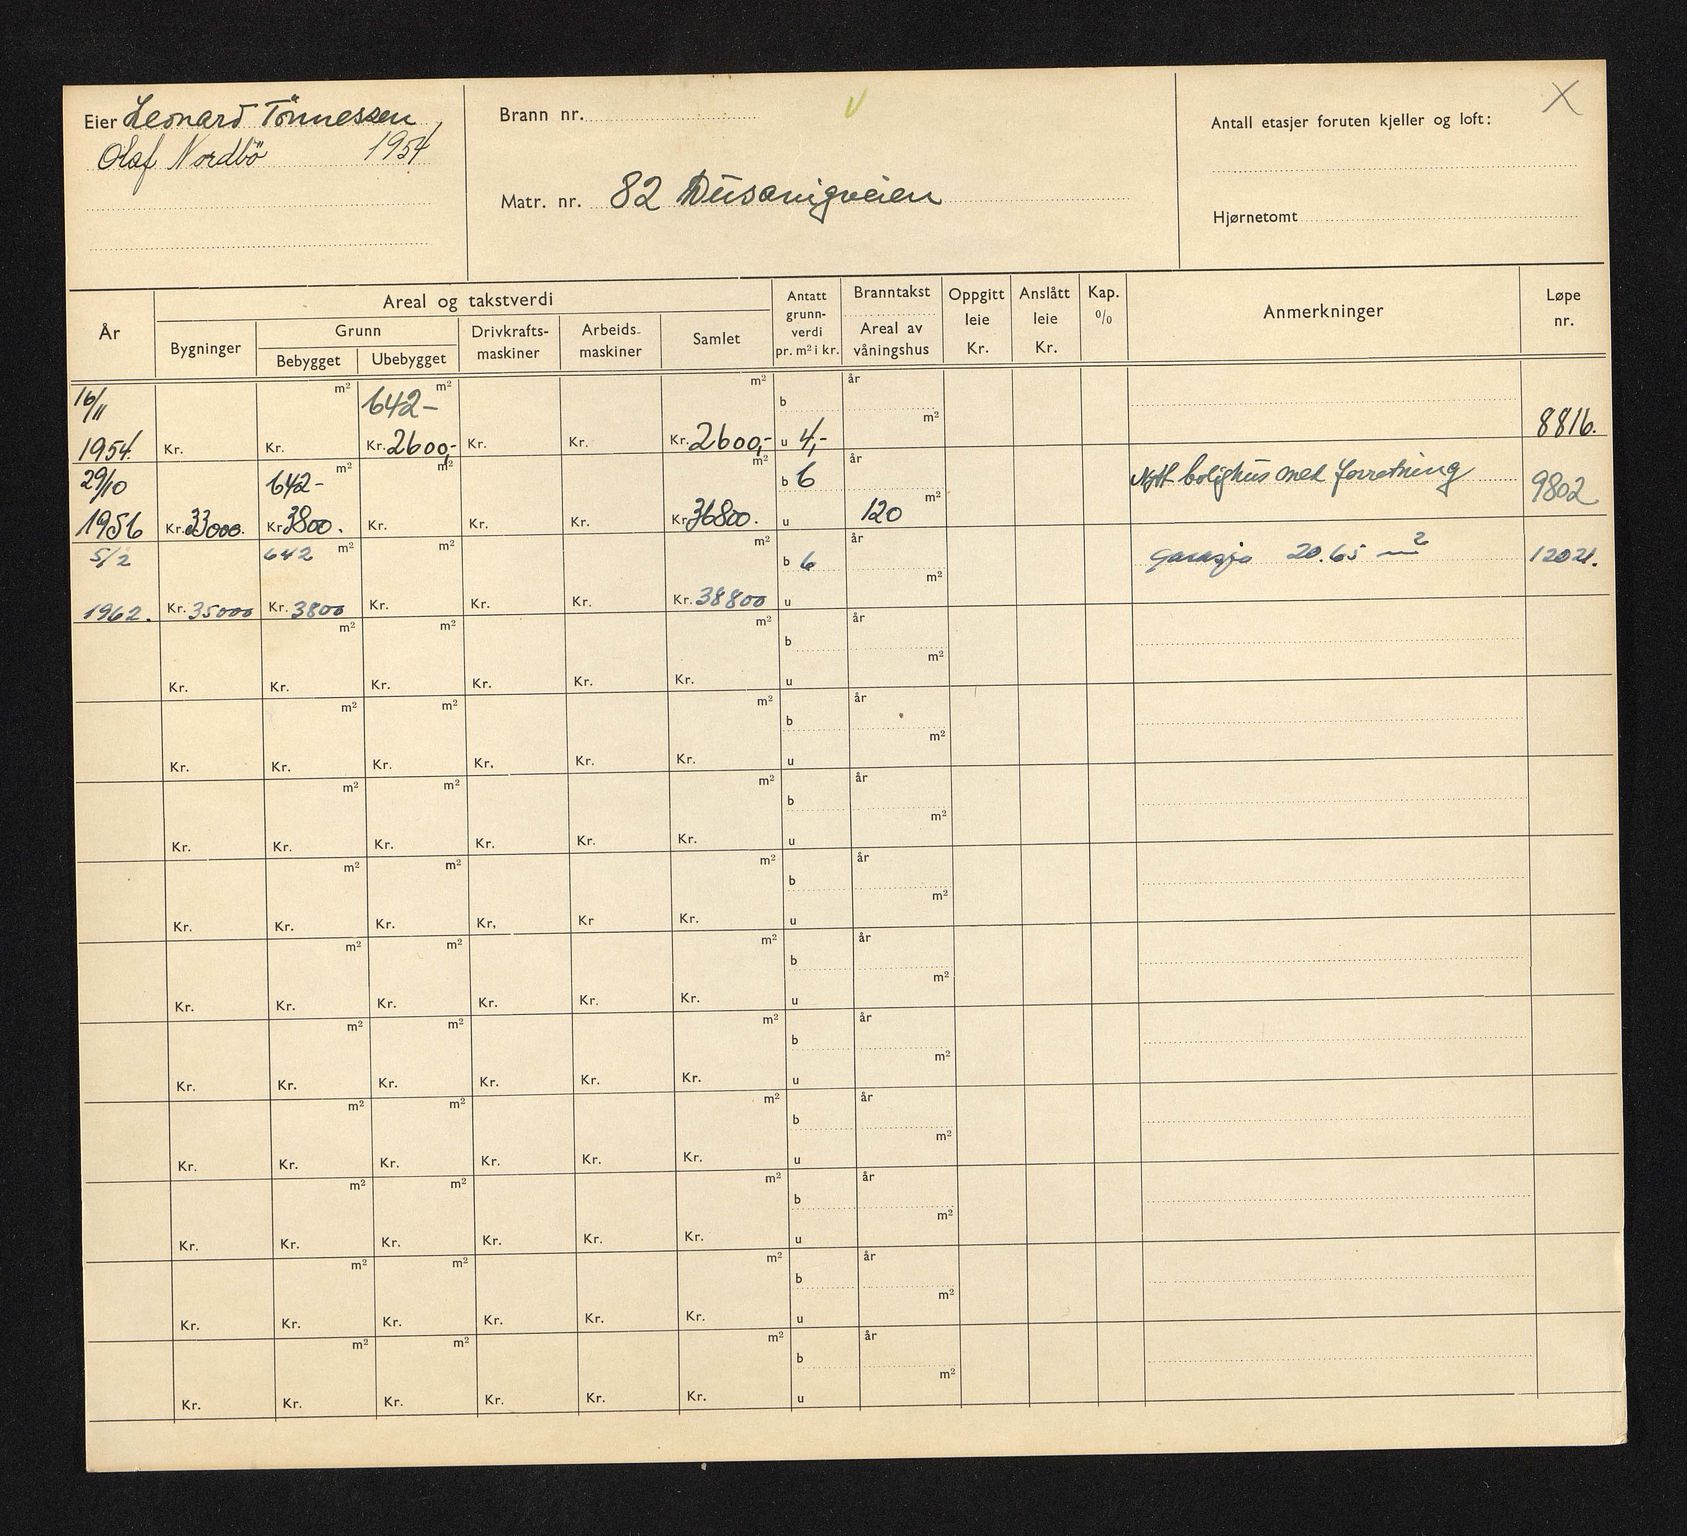 Eier Leonard Tönnessen
Olaf Nordbö 1954
Brann nr.
Matr. nr. 82 Dusavigveien
Antall etasjer foruten kjeller og loft: X
Hjørnetomt
År
Areal og takstverdi
Bygninger
Grunn
Bebygget Ubebygget
Drivkrafts-
maskiner
Arbeids-
maskiner
Samlet
Antatt
grunn-
verdi
pr. m² i kr.
Branntakst
Areal av
våningshus
Oppgitt
leie
Kr.
Anslått
leie
Kr.
Kap.
%
Anmerkninger
Løpe
nr.
16/11 m² 642- m² m² b år m²
1954. Kr. Kr. Kr. 2600,- Kr. Kr. Kr. 2600,- u 4,- 8816.
29/10 642- m² m² m² b 6 år m² Nytt bolighus med forretning
1956 Kr. 33000. Kr. 3800. Kr. Kr. Kr. Kr. 36800. u 120 9802
5/2 642 m² m² m² b 6 år m² garasje 20.65 m² 12021.
1962. Kr. 35000 Kr. 3800 Kr. Kr. Kr. Kr. 38800 u
m² m² m² b år m²
Kr. Kr. Kr. Kr. Kr. Kr. u
m² m² m² b år m²
Kr. Kr. Kr. Kr. Kr. Kr. u
m² m² m² b år m²
Kr. Kr. Kr. Kr. Kr. Kr. u
m² m² m² b år m²
Kr. Kr. Kr. Kr, Kr Kr. u
m² m² m² b år m²
Kr. Kr. Kr. Kr. Kr. Kr. u
m² m² m² b år m²
Kr. Kr. Kr. Kr. Kr. Kr. u
m² m² m² b år m²
Kr. Kr. Kr. Kr. Kr. Kr. u
m² m² m² b år m²
Kr. Kr. Kr. Kr. Kr. Kr. u
m² m² m² b år m²
Kr. Kr. Kr. Kr. Kr. Kr. u
m² m² m² b år m²
Kr. Kr. Kr. Kr. Kr. Kr. u